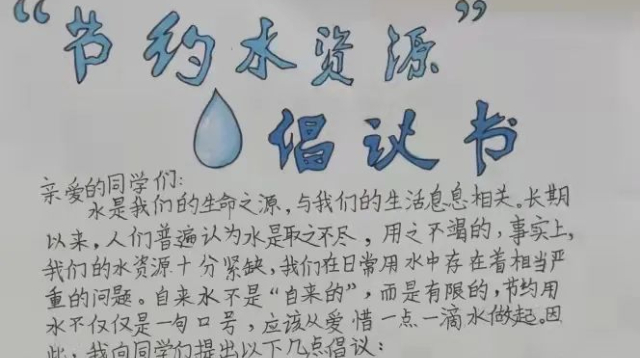 “节约水资源”
倡议书
亲爱的同学们:
水是我们的生命之源,与我们的生活息息相关。长期
以来,人们普遍认为水是取之不尽,用之不竭的,事实上,
我们的水资源十分紧缺,我们在日常用水中存在着相当严
重的问题。自来水不是“自来的”,而是有限的,节约用
水不仅仅是一句口号,应该从爱惜一点一滴水做起。因
此,我向同学们提出以下几点倡议: